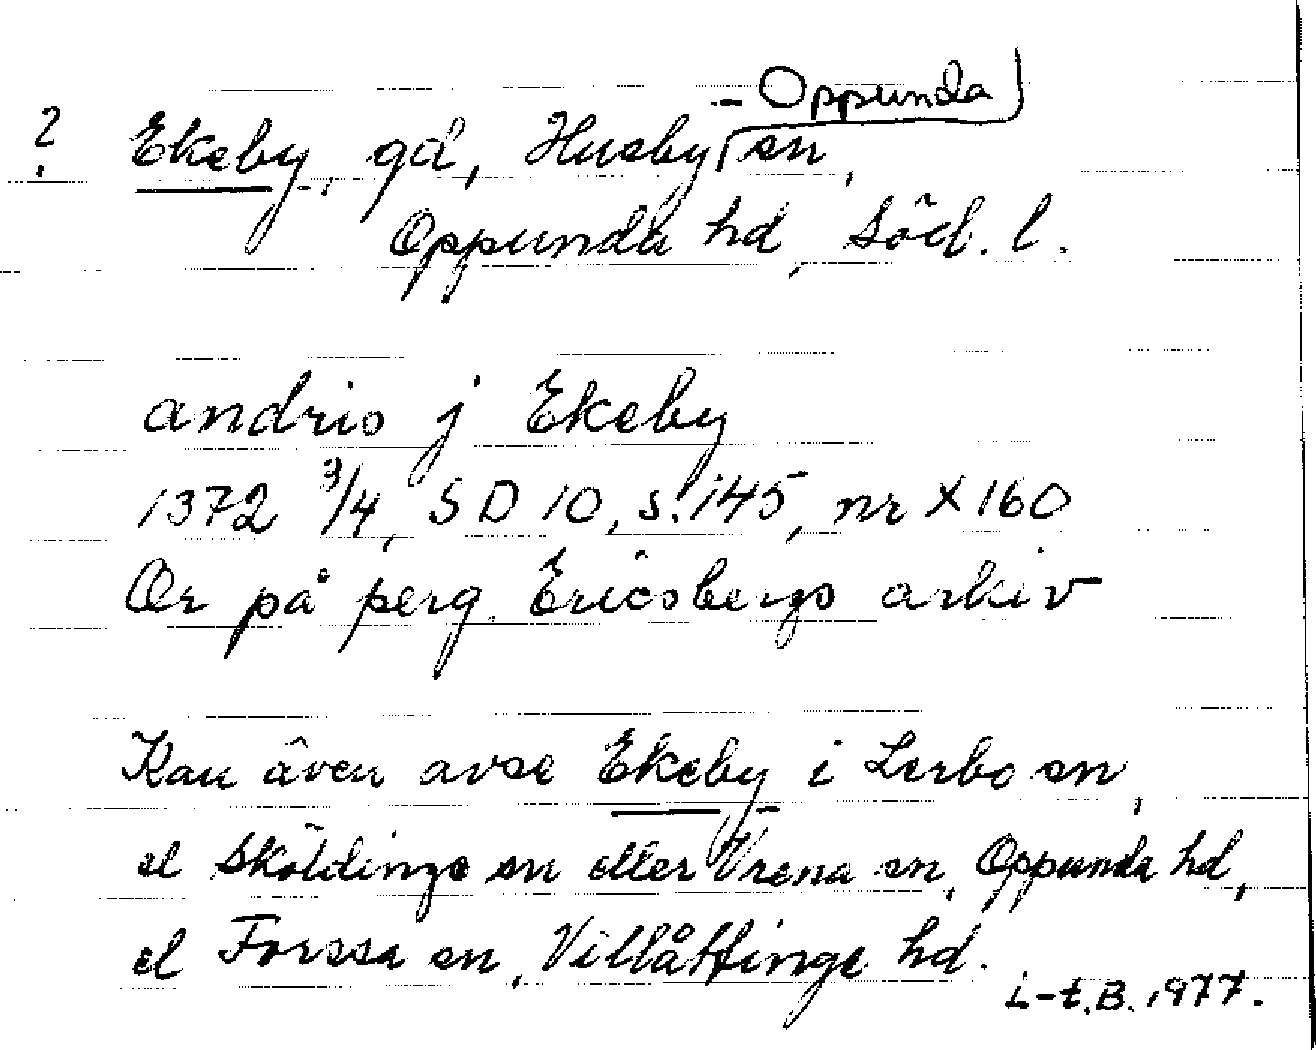 ? Ekeby, gd, Husby-Oppunda sn,
Oppunda hd, Söd. l.
andris j Ekeby
1372 3/4, SD 10, s. 145, nr X 160
Or på perg. Ericsbergs arkiv
Kan även avse Ekeby i Lerbo sn,
el Sköldinge sn eller Vrena sn, Oppunda hd,
el Forssa sn, Villåttinge hd.
L-t.B. 1977.